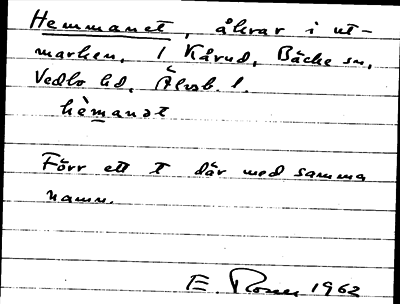 Hemmanet, åkrar i ut-
marken, 1 Kårud, Bäcke sn,
Vedbo hd, Älvsb. l.
hèmanət
Förr ett t där med samma
namn.
E. 1962